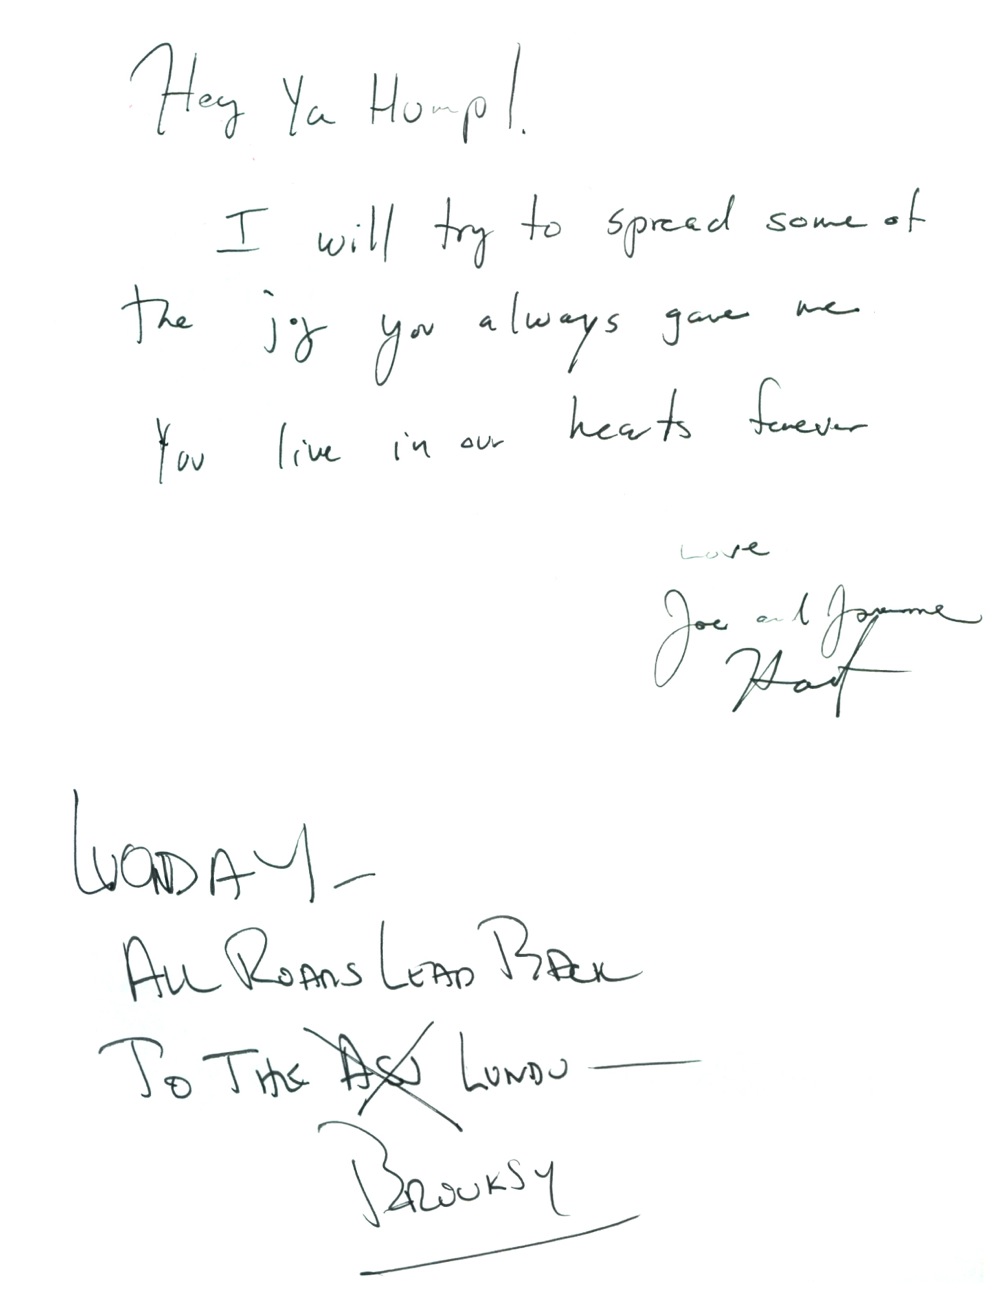 Hey Ya Hump!
I will try to spread some of
the joy you always gave me
You live in our hearts forever
Love
Joe and Joanne
Hart
ALL ROADS LEAD BACK
TO THE LUNDU —
BROOKSY